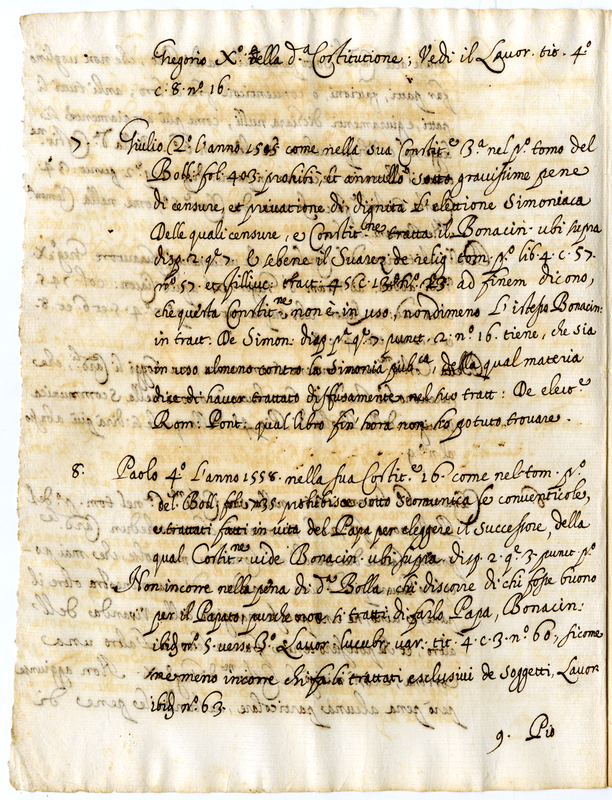 Gregorio X.º della d.ª Costitutione; Vedi il Lavor. tit. 4º
c. 8. nº 16.
7. Giulio 2.º l'anno 1505 come nella sua Constit.e 3ª nel pº tomo del
Boll: fol. 403. prohibì, et annullò sotto gravissime pene
di censure, et privatione di dignità l'elettione Simoniaca
Delle quali censure, e Constit.ne tratta il Bonacin. ubi supra
disp. 2. q. 7. e sebene il Suarez de relig. tom. pº lib. 4. c. 57.
nº 57. et Filliuc. tract. 45. c. ad finem dicono,
che questa Constit.ne non è in uso, nondimeno L'istesso Bonacin:
in tract. De Simon: disp. pª q. 7. punct. 2. nº 16. tiene, che sia
in uso almeno contro la Simonia pub.ca della qual materia
dice di haver trattato diffusamente nel suo tratt: De elect.e
Rom: Pont: qual libro fin' hora non ho potuto trovare.
8. Paolo 4.º L'anno 1558. nella sua Costit.e 16. come nel tom. pº
del Boll. fol. prohibisce sotto Scomunica le conventicole,
e trattati fatti in vita del Papa per eleggere il successore, della
qual Costit.ne vide Bonacin. ubi supra disp. 2. q. 3. punct pº
Non incorre nella pena di d.ª Bolla, chi discorre di chi fosse buono
per il Papato, purche non si tratti di farlo Papa, Bonacin:
ibid. nº. 5. vers. 3.º Lavor. lucubr. var. tit. 4. c. 3. nº 60, sicome
ne meno incorre chi fa li trattati esclusivi de soggetti, Lavor
ibid. nº. 63.
9. Pio